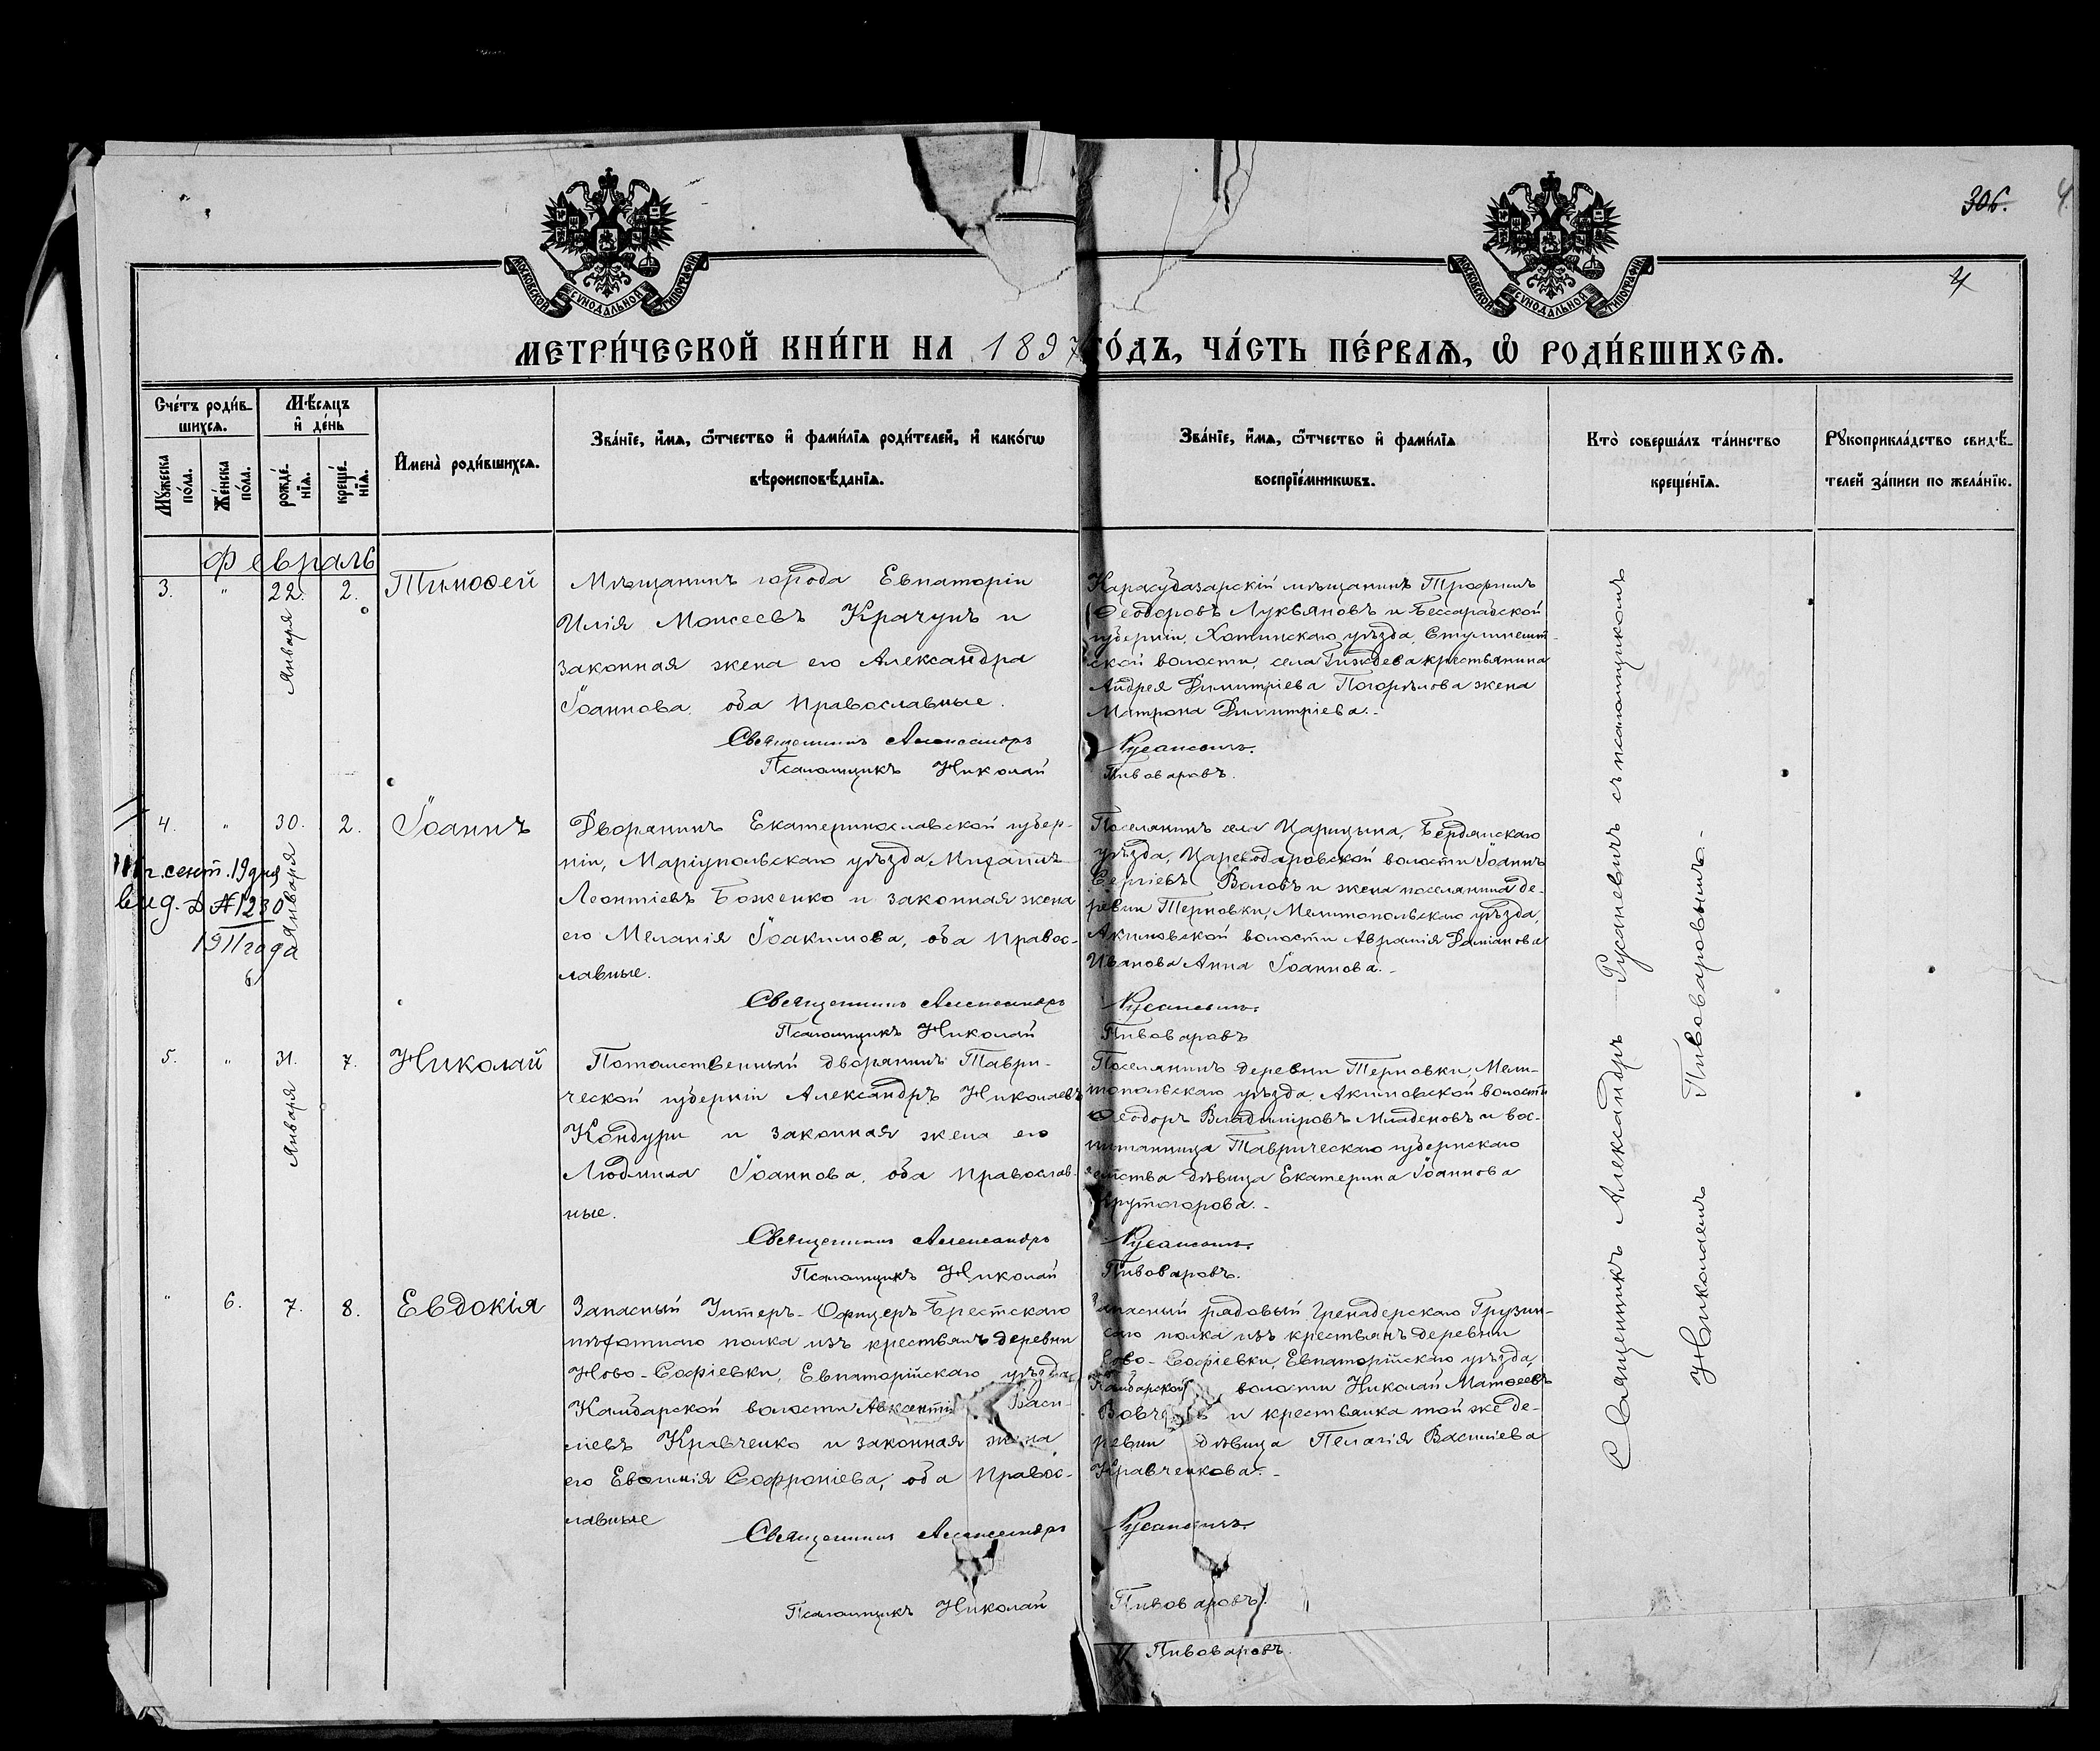 306.
4
4
МОСКОВСКОЙ СѴНОДАЛЬНОЙ ТИПОГРАФІИ
МОСКОВСКОЙ СѴНОДАЛЬНОЙ ТИПОГРАФІИ
МЕТРИ́ЧЕСКОЙ КНИ́ГИ НА 1897 ГО́ДЪ, ЧА́СТЬ ПЕ́РВАѦ, Ѡ҆ РОДИ́ВШИХСѦ.
Сче́тъ роди́в-
шихсѧ.
Мꙋ́жеска по́ла.
Же́нска по́ла.
Мѣ́сѧцъ
и҆ де́нь
рожде́-
нїѧ.
креще́-
нїѧ.
И҆мена̀ роди́вшихсѧ.
Зва́нїе, и҆́мѧ, ѻ҆́тчество и҆ фами́лїѧ роди́телей, и҆ како́гѡ
вѣроисповѣ́данїѧ.
Зва́нїе, и҆́мѧ, ѻ҆́тчество и҆ фами́лїѧ
воспрїе́мникѡвъ.
Кто̀ соверша́лъ та́инство
креще́нїѧ.
Рꙋкоприкла́дство свидѣ́-
телей за́писи по жела́нїю.
Февраль
3. " 22. Января 2. Тимоѳей
Мѣщанинъ города Евпаторіи
Илія Моисеевъ Крачунъ и
законная жена его Александра
Іоаннова, оба православные.
Священникъ Александръ
Псаломщикъ Николай
Карасубазарскій мѣщанинъ Трофимъ
Ѳеодоровъ Лукьяновъ и Бессарабской
губерніи, Хотинскаго уѣзда,
ской волости, села Гиждева крестьянина
Андрея Димитріева Погорѣлова жена
Матрона Димитріева.-
Русаневичъ.
Пивоваровъ.
4. " 30. Января 2. Іоаннъ
сент. 19 дня
выд. № 1230
1911 года
Дворянинъ Екатеринославской губер-
ніи, Маріупольскаго уѣзда, Михаилъ
Леонтіевъ Боженко и законная жена
его Меланія Іоакимова, оба право-
славные.
Священникъ Александръ
Псаломщикъ Николай
Поселянинъ села Царицына, Бердянскаго
уѣзда, Цареводаровской волости Іоаннъ
Сергіевъ Воловъ и жена поселянина де-
ревни Терновки, Мелитопольскаго уѣзда,
Акимовской волости Аврамія Даміанова
Иванова Анна Іоаннова.-
Русаневичъ.
Пивоваровъ
5. " 31. Января 7. Николай
Потомственный дворянинъ Таври-
ческой губерніи Александръ Николаевъ
Кондури и законная жена его
Людмила Іоаннова, оба православ-
ные.
Священникъ Александръ
Псаломщикъ Николай
Поселянинъ деревни Терновки, Мели-
топольскаго уѣзда, Акимовской волости
Ѳеодоръ Владиміровъ Младеновъ и вос-
питанница Таврическаго губернскаго
земства дѣвица Екатерина Іоаннова
Крутогорова.-
Русаневичъ.
Пивоваровъ.
" 6. 7. 8. Евдокія
Запасный Унтеръ-Офицеръ Брестскаго
пѣхотнаго полка изъ крестьянъ деревни
Ново-Софіевки, Евпаторійскаго уѣзда,
Камбарской волости Авксентій Васи-
ліевъ Кравченко и законная жена
его Евѳимія Софроніева, оба право-
славные
Священникъ Александръ
Псаломщикъ Николай
Запасный рядовый Гренадерскаго Грузин-
скаго полка изъ крестьянъ деревни
Ново-Софіевки, Евпаторійскаго уѣзда,
Камбарской волости Николай Матѳеевъ
и крестьянка той же де-
ревни дѣвица Пелагія Василіева
Кравченкова.-
Русаневичъ.
Пивоваровъ.
Пивоваровъ.
Священникъ Александръ Русаневичъ съ псаломщикомъ
Николаемъ Пивоваровымъ.-